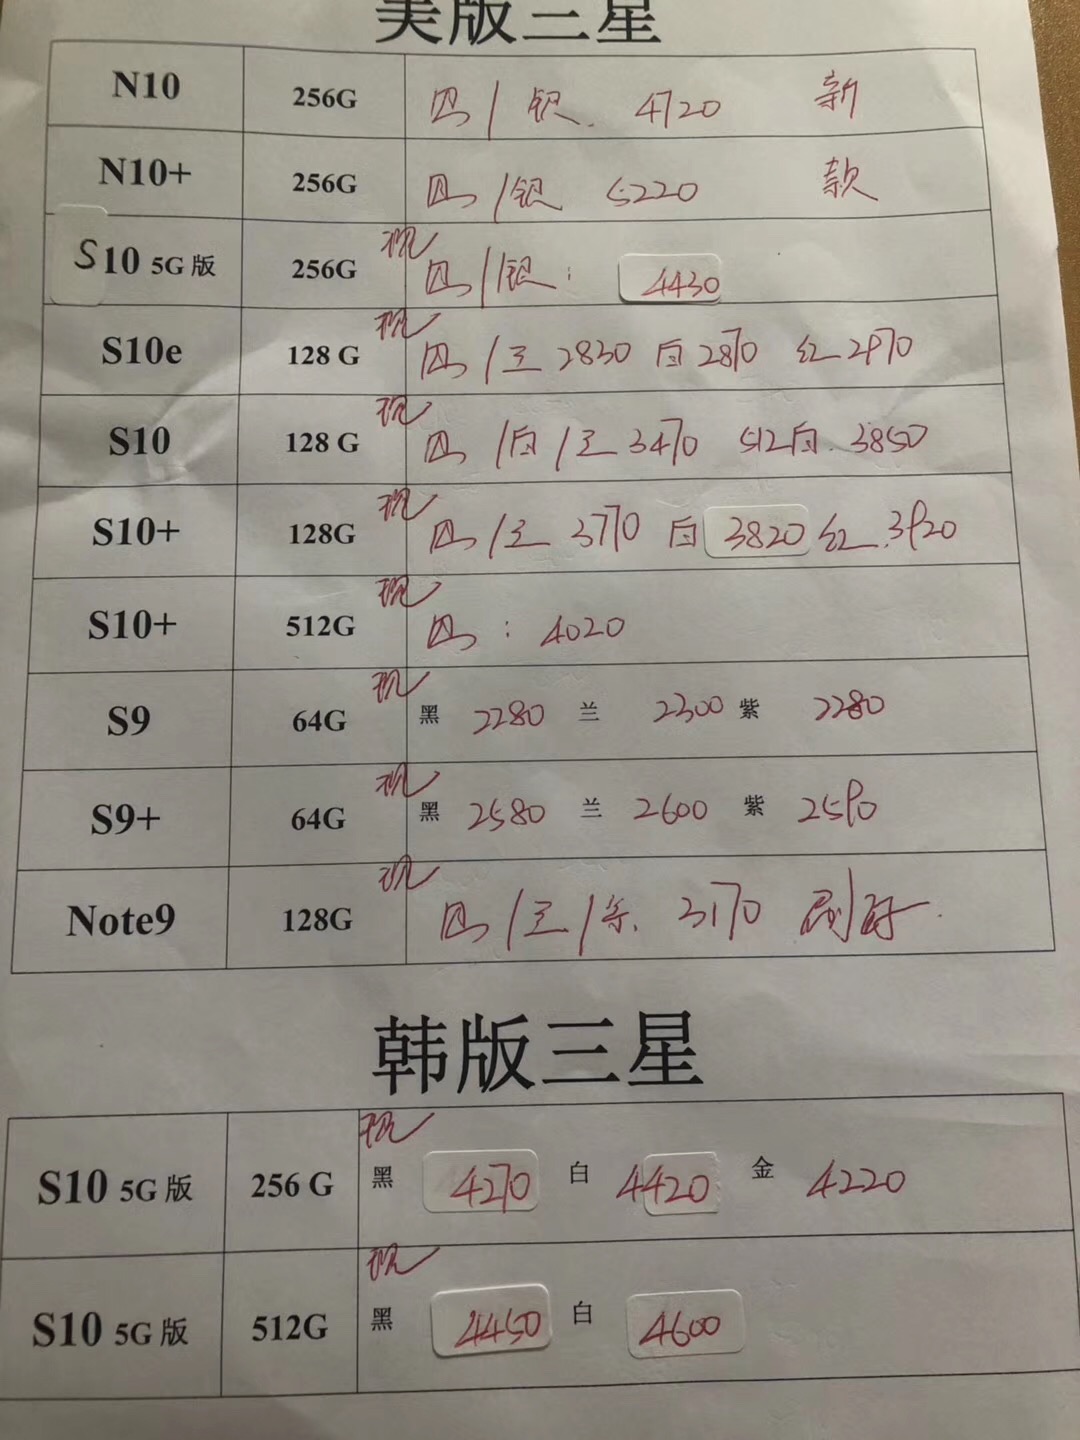 美版三星
N10 256G 四/银. 4720 新
N10+ 256G 四/银 5220 款
现
S10 5G版 256G 四/银: 4430
现
S10e 128 G 四/兰 2830 白 2870 红 2970
现
S10 128 G 四/白/兰 3470 512白. 3850
现
S10+ 128G 四/兰 3770 白 3820 红.3920
现
S10+ 512G 四: 4020
现
S9 64G 黑 2280 兰 2300 紫 2280
现
S9+ 64G 黑 2580 兰 2600 紫 2590
现
Note9 128G 四/兰/紫. 3170
韩版三星
现
S10 5G版 256 G 黑 4270 白 4420 金 4220
现
S10 5G版 512G 黑 4450 白 4600